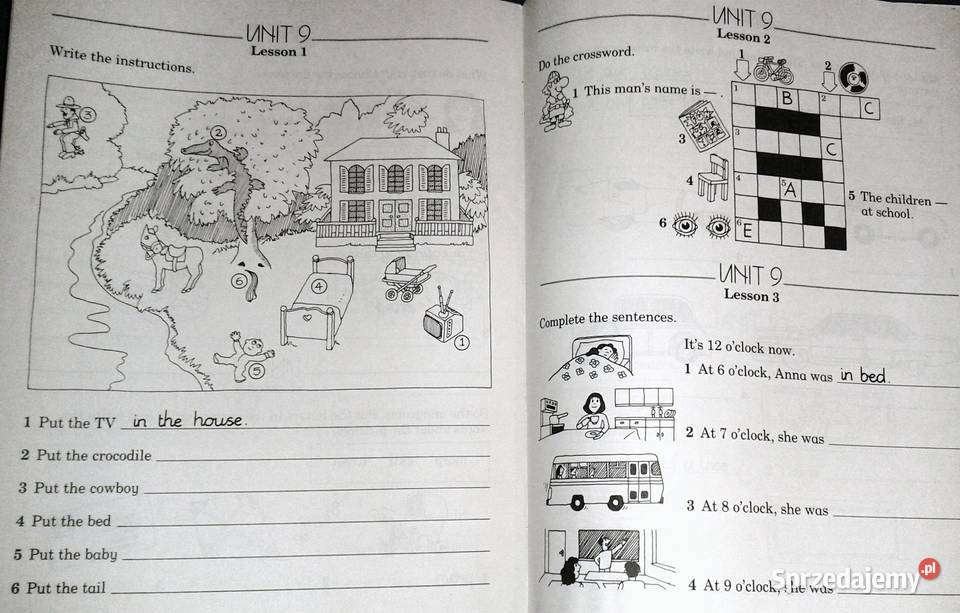 UNIT 9
Lesson 1
Write the instructions.
3
2
6
4
5
1
1 Put the TV in the house.
2 Put the crocodile
3 Put the cowboy
4 Put the bed
5 Put the baby
6 Put the tail
UNIT 9
Lesson 2
Do the crossword.
1 This man's name is — .
1
2
3
4
6
5 The children —
at school.
1 B 2 C
3 C
4 5 A
6 E
UNIT 9
Lesson 3
Complete the sentences.
It's 12 o'clock now.
1 At 6 o'clock, Anna was in bed.
2 At 7 o'clock, she was
3 At 8 o'clock, she was
4 At 9 o'clock, she was
Sprzedajemy.pl